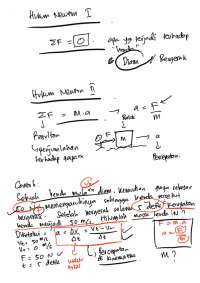 Hukum Newton I
ΣF = 0
apa yg terjadi terhadap
benda?
Diam
Bergerak
Hukum Newton II
ΣF = m.a
a = F/m
Resultan
penjumlahan
terhadap gaya
F
m
a
Percepatan
Contoh:
Sebuah benda mula² diam. kemudian gaya sebesar
50 N
sehingga benda
bergerak. Setelah bergerak selama 5 detik, kecepatan
benda menjadi 50 m/s. Hitunglah massa benda ini?
Diketahui =
a = Δv/Δt = Vt - Vo/Δt
Vt = 50 m/s
Vo = 0 m/s
F = 50 N
t = 5 detik
Percepatan
di kinematika
F = m.a
a = F/m
M?